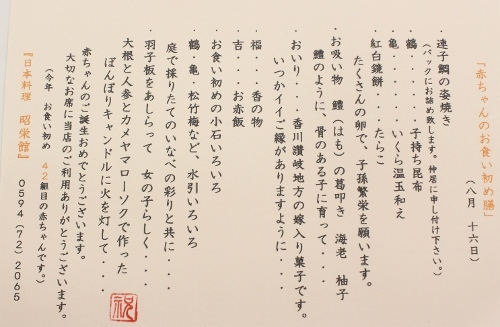 「赤ちゃんのお食い初め膳」
（八月　十六日）
・連子鯛の姿焼き
（パックにお詰め致します。仲居に申し付け下さい。）
・鶴・・・・・・子持ち昆布
・亀・・・・・・いくら温玉和え
・紅白鏡餅・・・・たらこ
たくさんの卵で、子孫繁栄を願います。
・お吸い物　鱧（はも）の葛叩き　海老　柚子
鱧のように、骨のある子に育って・・・
・おいり・・・香川讃岐地方の嫁入り菓子です。
いつかイイご縁がありますように・・・
・福・・・香の物
・吉・・・お赤飯
・お食い初めの小石いろいろ
・鶴・亀・松竹梅など、水引いろいろ
庭で採りたてのいなべの彩りと共に・・・
・羽子板をあしらって　女の子らしく・・・
・大根と人参とカメヤマローソクで作った
ぼんぼりキャンドルに火を灯して・・・
赤ちゃんのご誕生おめでとうございます。
大切なお席に当店のご利用ありがとうございます。
（今年　お食い初め　４２組目の赤ちゃんです。）
『日本料理　昭栄館』　０５９４（７２）２０６５
祝